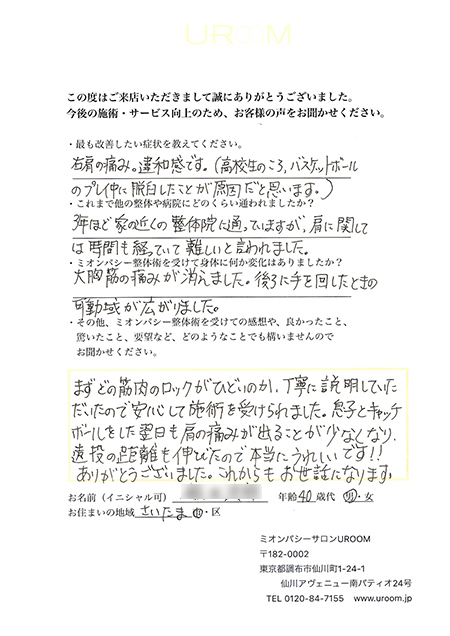 UROOM
この度はご来店いただきまして誠にありがとうございました。
今後の施術・サービス向上のため、お客様の声をお聞かせください。
・最も改善したい症状を教えてください。
右肩の痛み。違和感です。(高校生のころ、バスケットボール
のプレイ中に脱臼したことが原因だと思います。)
・これまで他の整体や病院にどのくらい通われましたか？
3年ほど家の近くの整体院に通っていますが、肩に関して
は時間も経っていて難しいと言われました。
・ミオンパシー整体術を受けて身体に何か変化はありましたか？
大胸筋の痛みが消えました。後ろに手を回したときの
可動域が広がりました。
・その他、ミオンパシー整体術を受けての感想や、良かったこと、
驚いたこと、要望など、どのようなことでも構いませんので
お聞かせください。
まずどの筋肉のロックがひどいのか、丁寧に説明していた
だいたので安心して施術を受けられました。息子とキャッチ
ボールをした翌日も肩の痛みが出ることが少なくなり、
遠投の距離も伸びたので本当にうれしいです!!
ありがとうございました。これからもお世話になります。
お名前（イニシャル可） 年齢 40 歳代 男・女
お住まいの地域 さいたま 市・区
ミオンパシーサロンUROOM
〒182-0002
東京都調布市仙川町1-24-1
仙川アヴェニュー南パティオ24号
TEL 0120-84-7155 www.uroom.jp